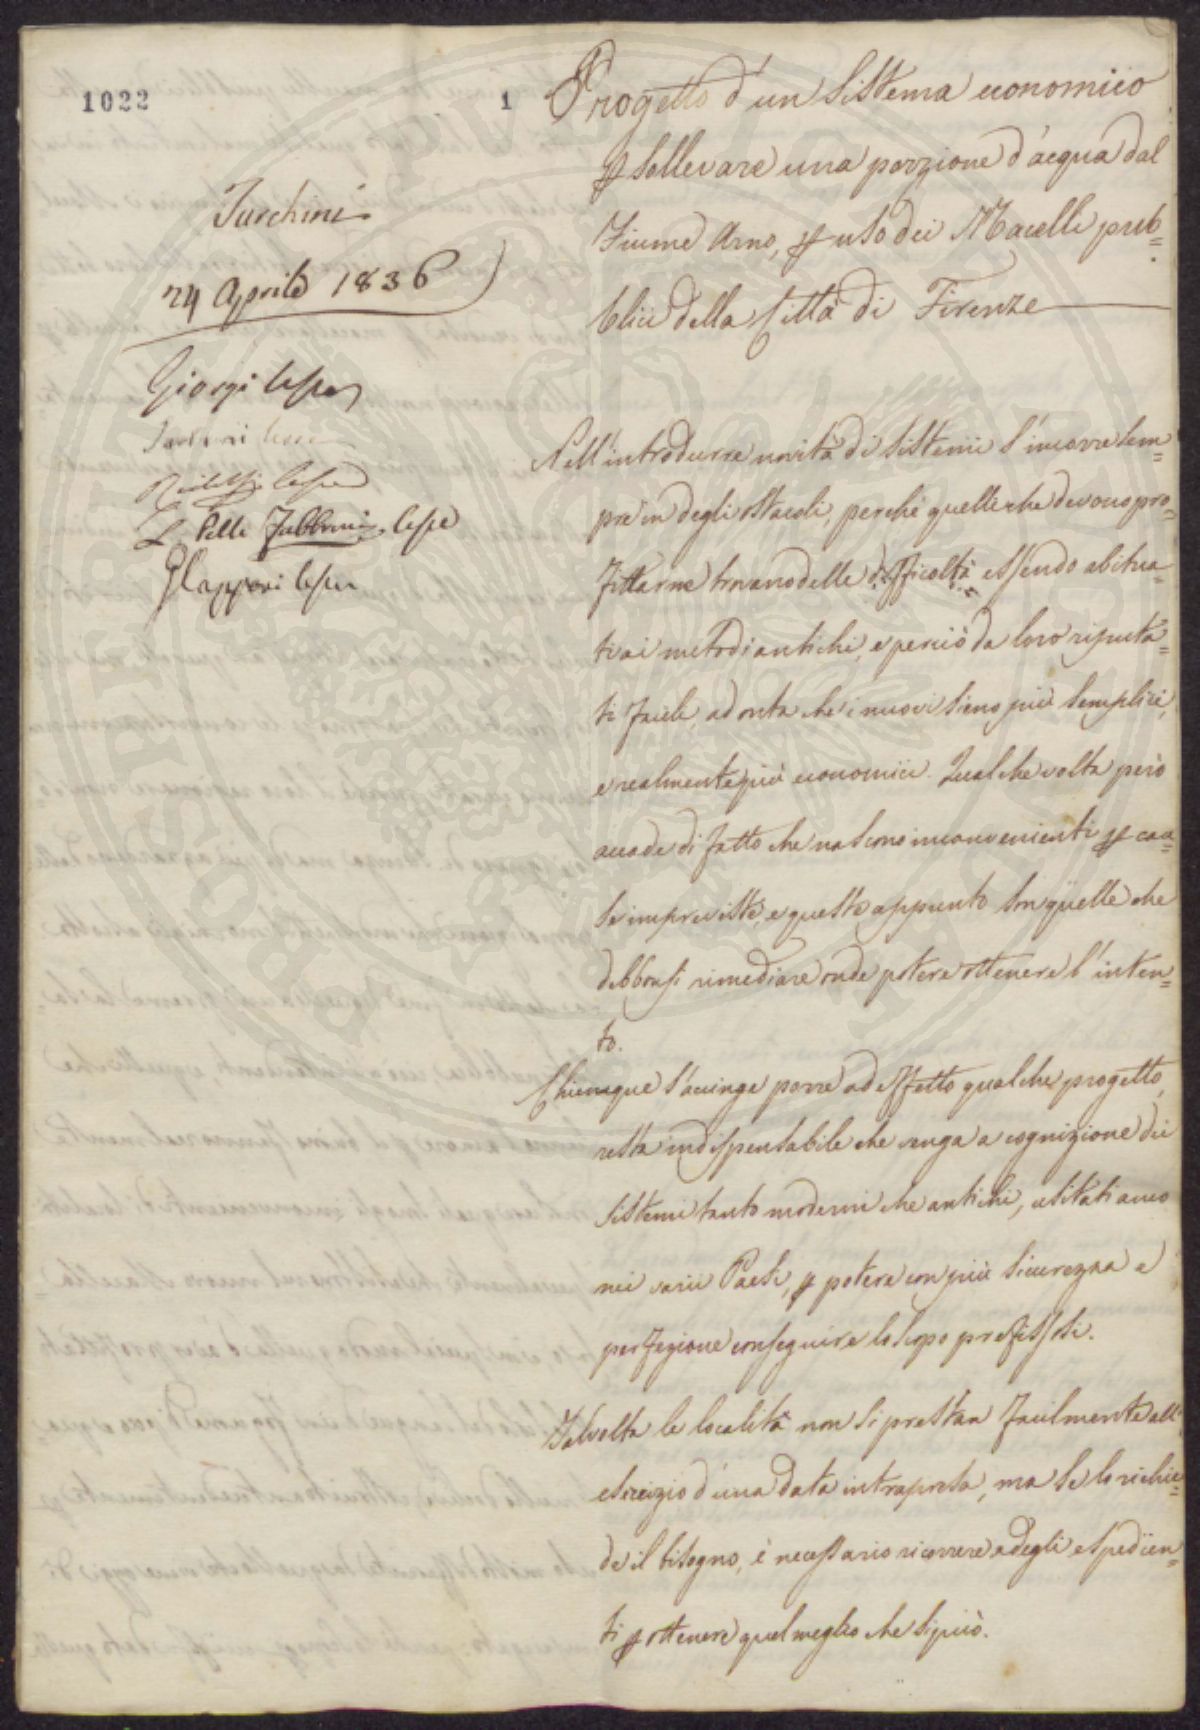 1022
1
Turchini
24 Aprile 1836
Giorgi lesse
Ridolfi lesse
L. Pelli Fabbroni lesse
G Lapponi lesse
Progetto d'un Sistema economico
p sollevare una porzione d'acqua dal
Fiume Arno, p uso dei Macelli pub=
blici della Città di Firenze
Nell'introdurre novità di Sistemi s'incorre sem=
pre in degli ostacoli, perchè quelli che devono pro=
fittarne trovano delle difficoltà essendo abitua=
ti ai metodi antichi, e perciò da loro riputa=
ti facili, ad onta che i nuovi sieno più semplici,
e realmente più economici. Qualche volta però
accade di fatto che nascono inconvenienti p cau=
se impreviste, e queste appunto son quelle che
debbonsi rimediare onde potere ottenere l'inten=
to.
Chiunque s'accinge porre ad effetto qualche progetto,
resta indispensabile che venga a cognizione dei
sistemi tanto moderni che antichi, usitati anco
nei varii Paesi, p potere con più sicurezza e
perfezione conseguire lo scopo prefissosi.
Talvolta le località non si prestan facilmente all'
esercizio d'una data intrapresa, ma se lo richie=
de il bisogno, è necessario ricorrere a degli espedien=
ti p ottenere quel meglio che si può.
PROSPERITATI PVBLICAE AVGENDAE